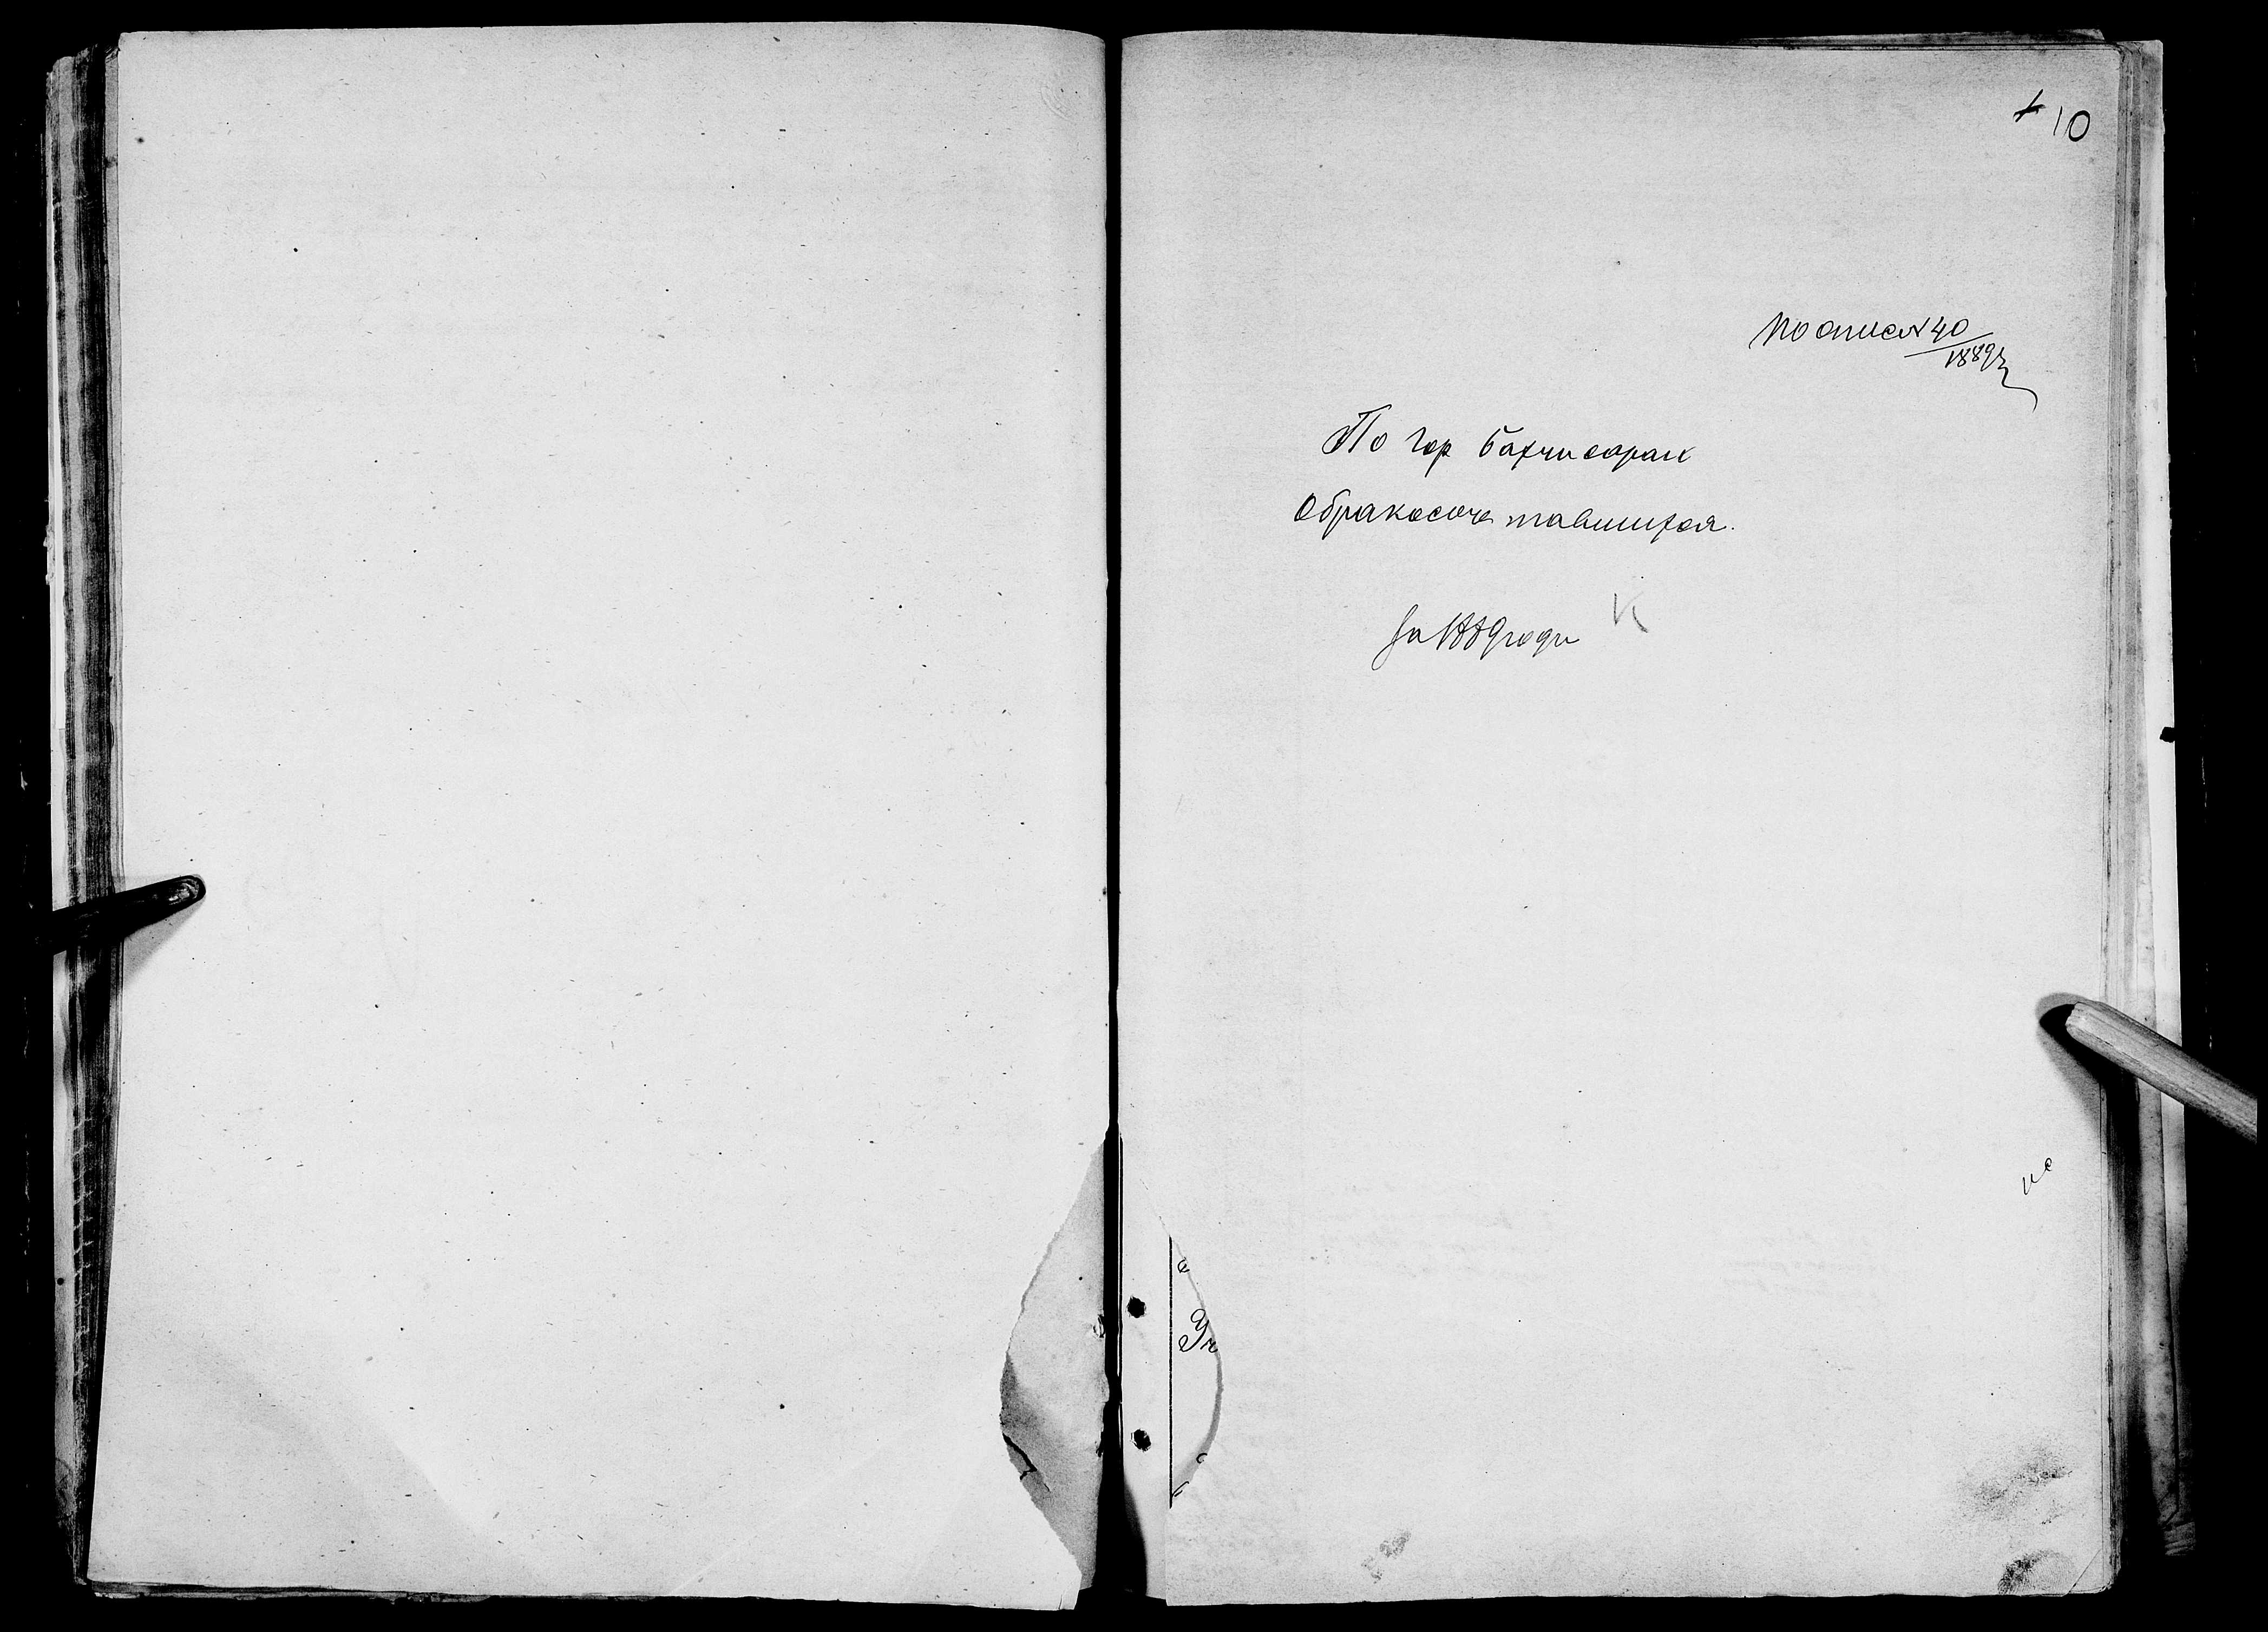 10
По описи 40
1889 г
По гор Бахчисараю
О бракосочетавшихся.
За 1889 годъ
К